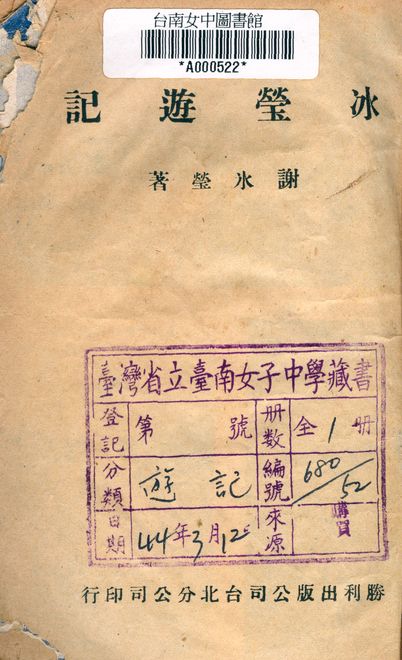 台南女中圖書館
*A000522*
冰瑩遊記
謝冰瑩著
臺灣省立臺南女子中學藏書
登記 第 號 册数 全1册
分類 遊記 編號 680/52
日期 44年3月12 來源 購買
勝利出版公司台北分公司印行